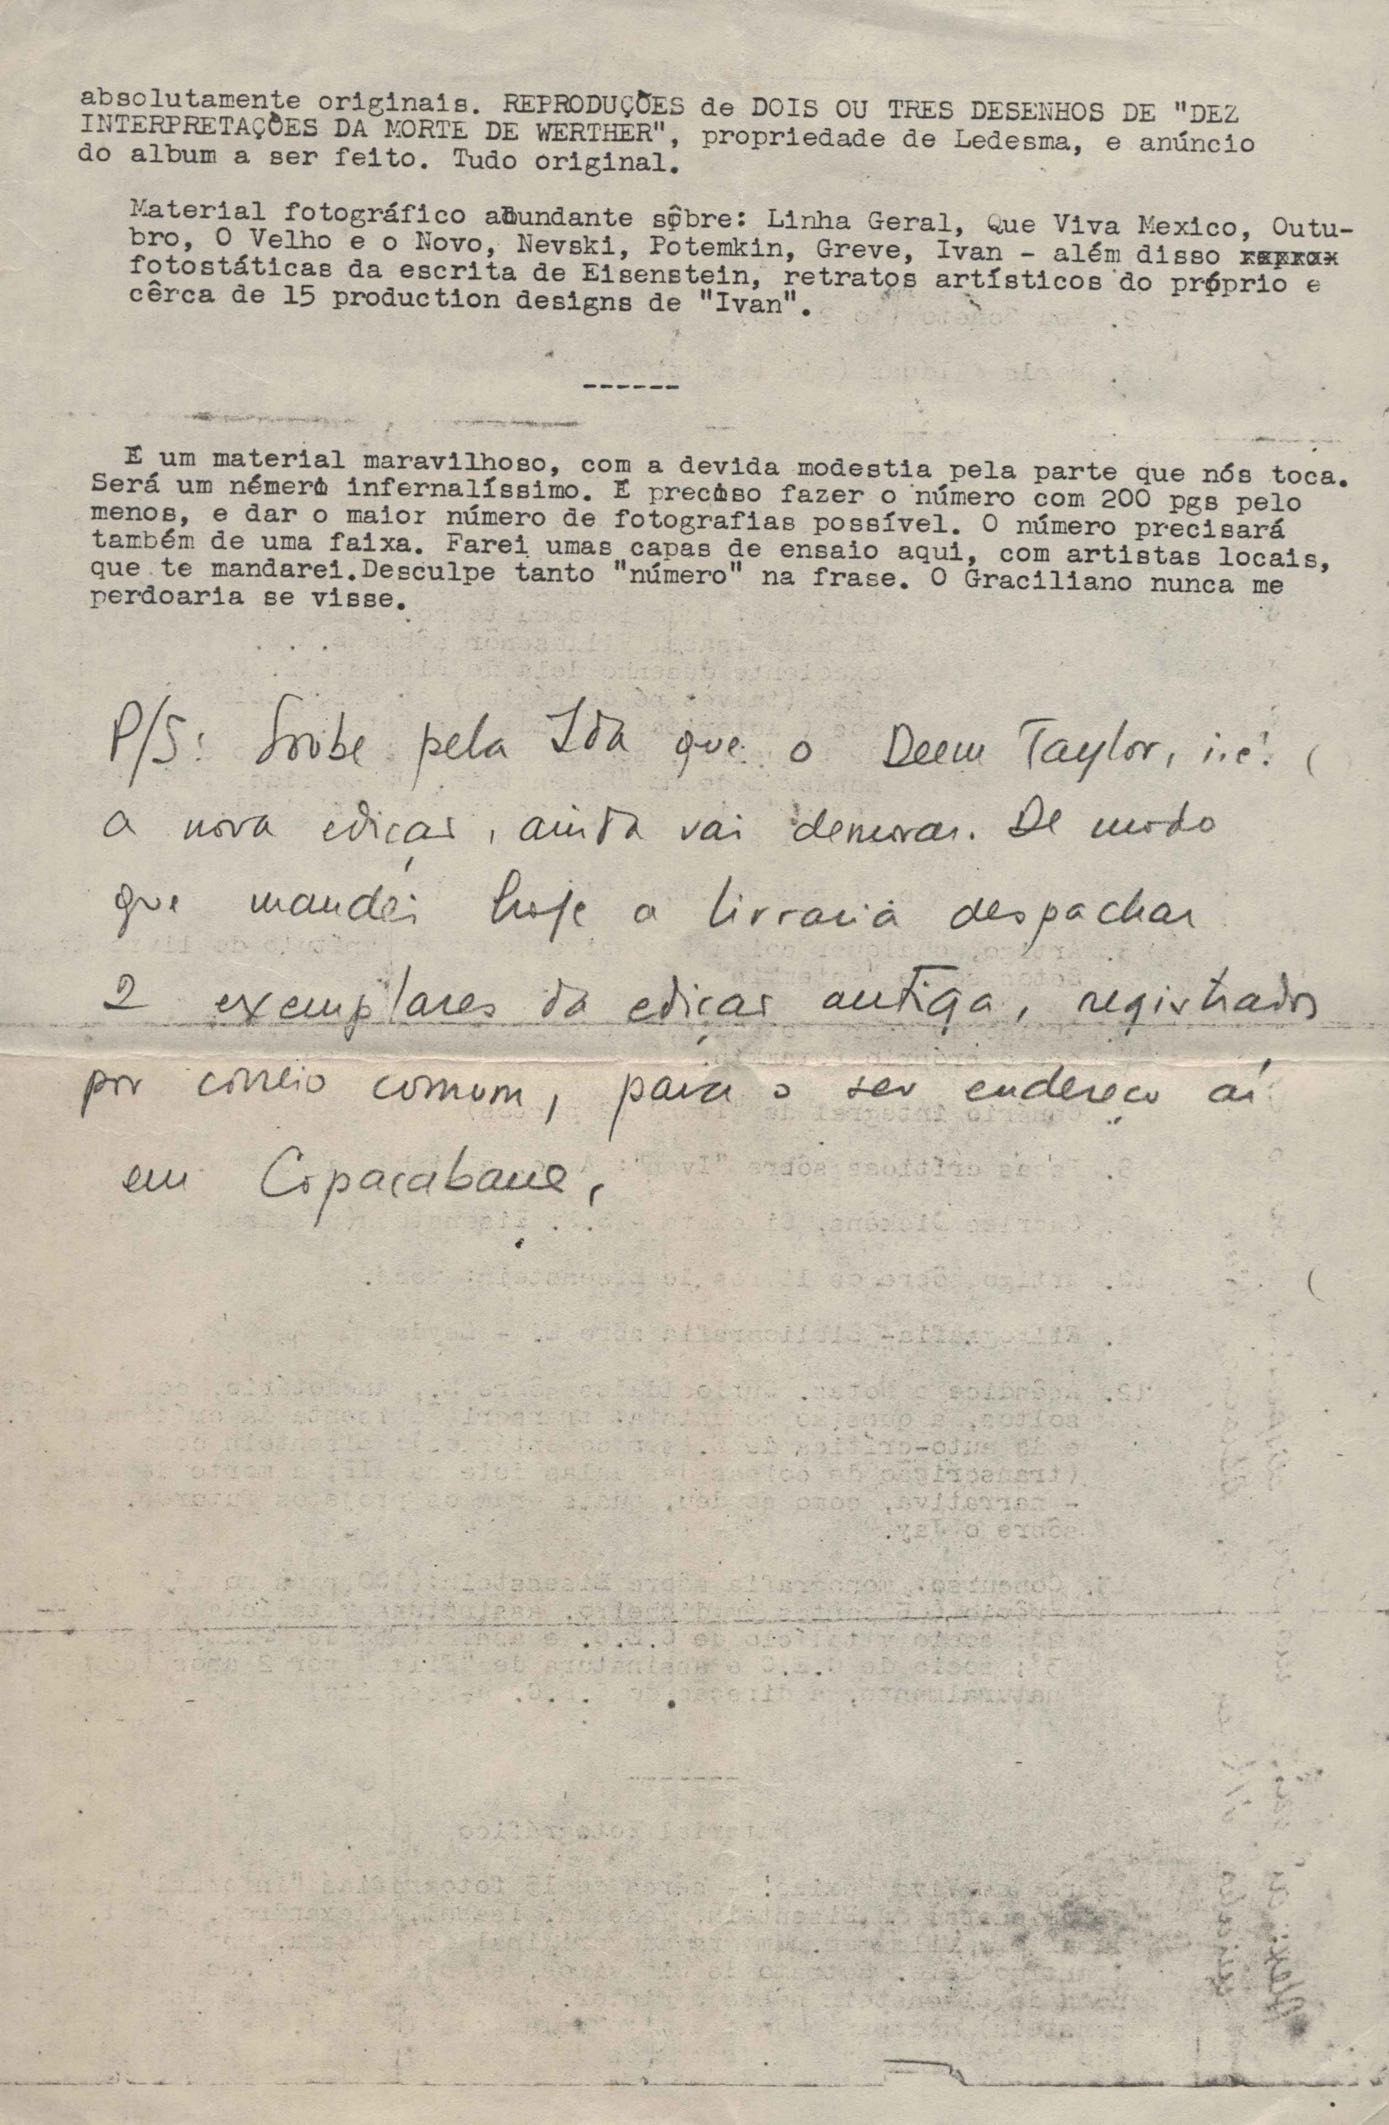 absolutamente originais. REPRODUÇÕES de DOIS OU TRES DESENHOS DE "DEZ
INTERPRETAÇÕES DA MORTE DE WERTHER", propriedade de Ledesma, e anúncio
do album a ser feito. Tudo original.
Material fotográfico abundante sôbre: Linha Geral, Que Viva Mexico, Outu-
bro, O Velho e o Novo, Nevski, Potemkin, Greve, Ivan - além disso
fotostáticas da escrita de Eisenstein, retratos artísticos do próprio e
cêrca de 15 production designs de "Ivan".
------
É um material maravilhoso, com a devida modestia pela parte que nós toca.
Será um némero infernalíssimo. É preciso fazer o número com 200 pgs pelo
menos, e dar o maior número de fotografias possível. O número precisará
também de uma faixa. Farei umas capas de ensaio aqui, com artistas locais,
que te mandarei.Desculpe tanto "número" na frase. O Graciliano nunca me
perdoaria se visse.
P/S: Soube pela Ida que o Deem Taylor, i.é. (
a nova edição, ainda vai demorar. De modo
que mandei hoje a livraria despachar
2 exemplares da edição antiga, registrados
por correio comum, para o seu endereço aí
em Copacabana.